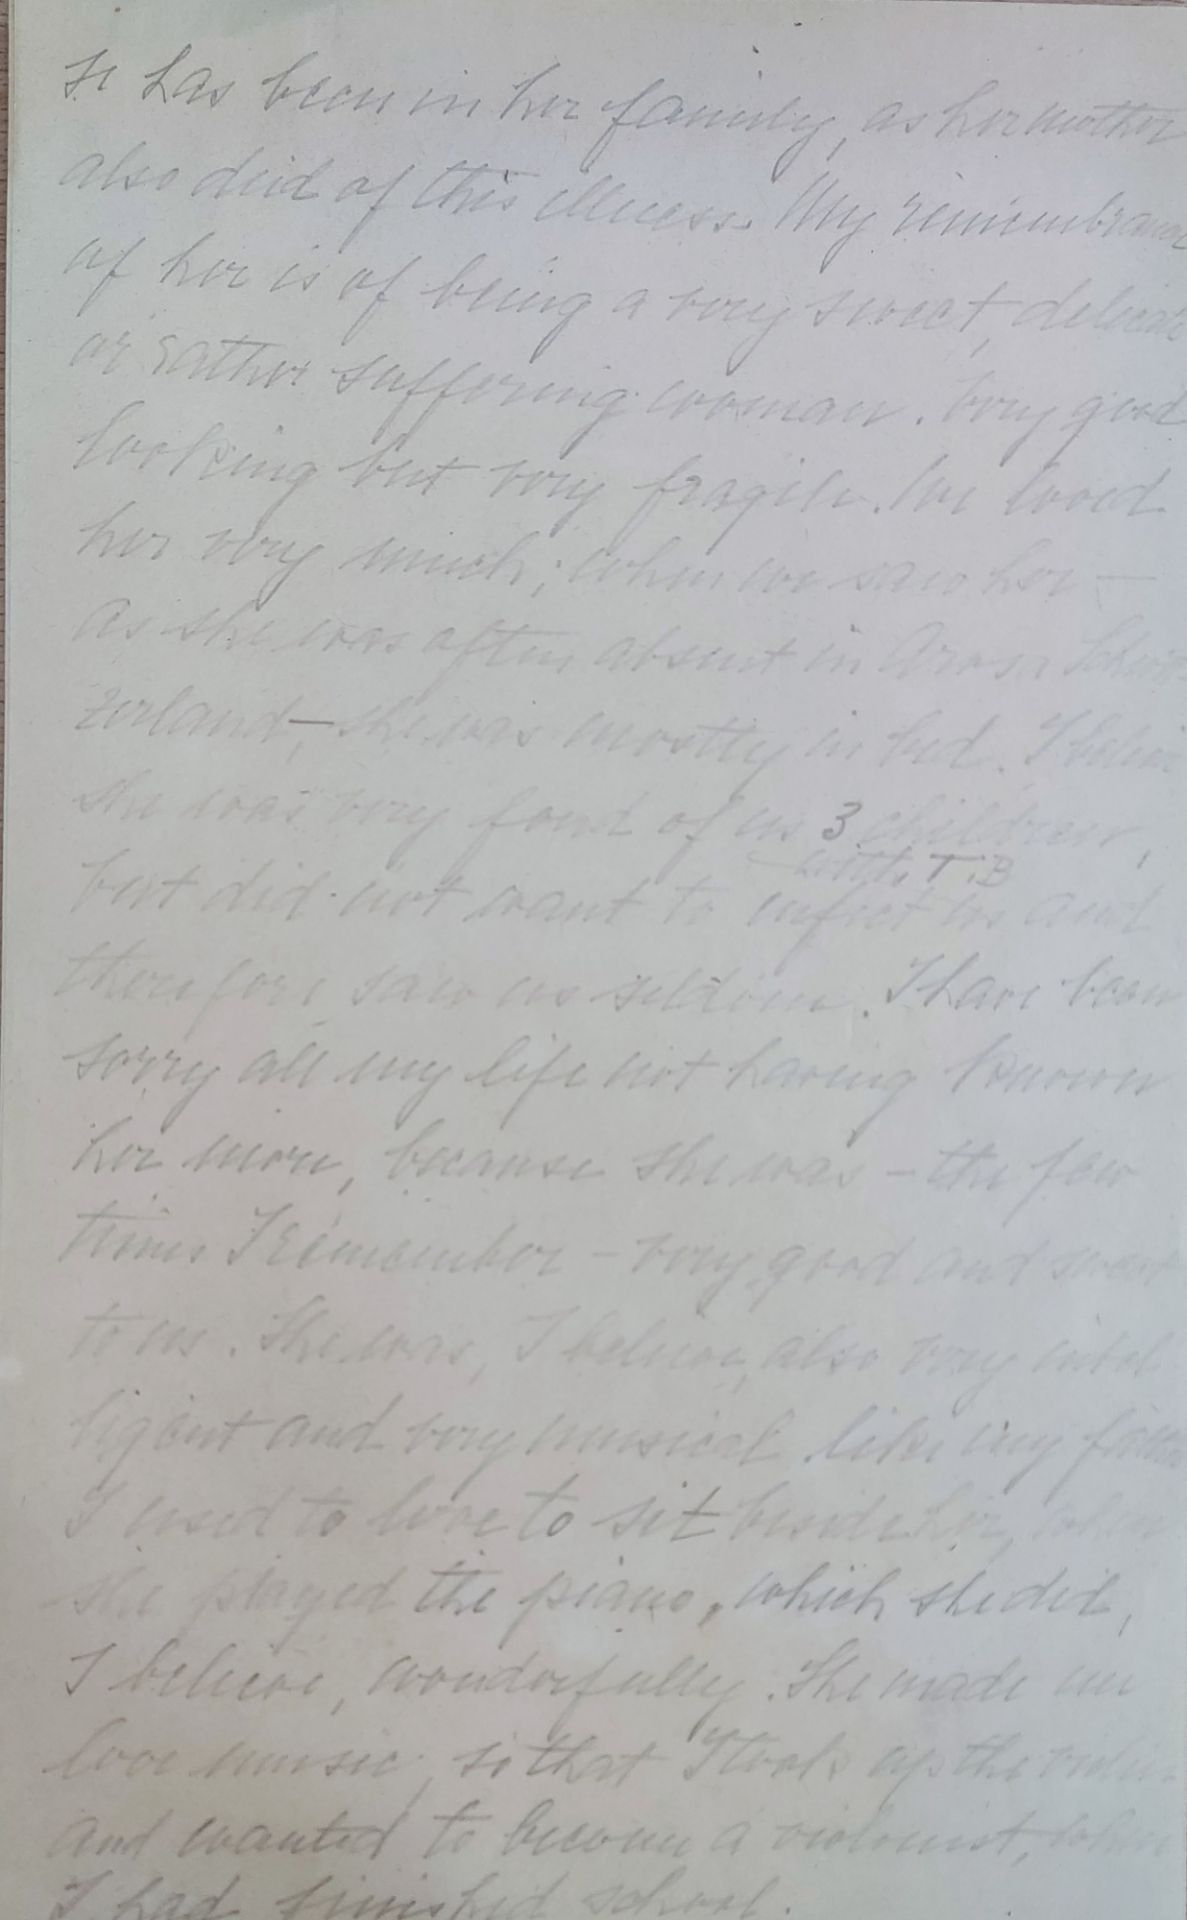 It has been in her family, as her mother
also died of this illness. My remembrance
of her is of being a very sweet, delicate
or rather suffering woman. Very good
looking but very fragile. We loved
her very much; when we saw her —
as she was often absent in Arosa Schwit-
zerland, — she was mostly in bed. I believe
she was very fond of us 3 children,
with T.B
but did not want to infect us and
therefore saw us seldom. I have been
sorry all my life not having known
her more, because she was – the few
times I remember – very good and sweet
to us. She was, I believe, also very intel
ligent and very musical like my father
I used to love to sit beside her, when
she played the piano, which she did,
I believe, wonderfully. She made me
love music, so that I took up the violin
and wanted to become a violinist, when
I had finished school.